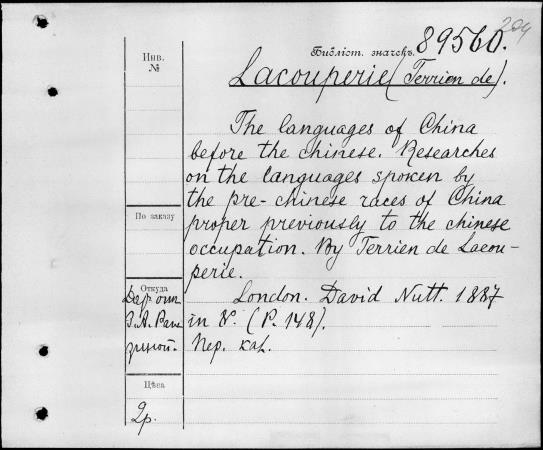 204
Библіот. значекъ 89560.
Инв.
№
Lacouperie (Terrien de).
The languages of China
before the chinese. Researches
on the languages spoken by
the pre-chinese races of China
proper previously to the chinese
occupation. By Terrien de Lacou-
perie.
London. David Nutt. 1887
in 8°. (P. 148).
Пер. кал.
По заказу
Откуда
Дар отъ
Цѣна
2р.